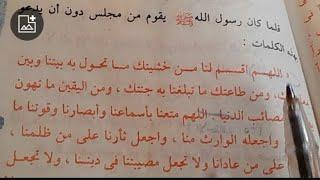 فلما كان رسول الله ﷺ يقوم من مجلس دون أن يدعو
بهذه الكلمات :
اللهم اقسم لنا من خشيتك ما تحول به بيننا وبين
ومن طاعتك ما تبلغنا به جنتك ، ومن اليقين ما تهون
مصائب الدنيا . اللهم متعنا بأسماعنا وأبصارنا وقوتنا ما
واجعله الوارث منا ، واجعل ثأرنا على من ظلمنا ،
على من عادانا ولا تجعل مصيبتنا في ديننا ، ولا تجعل